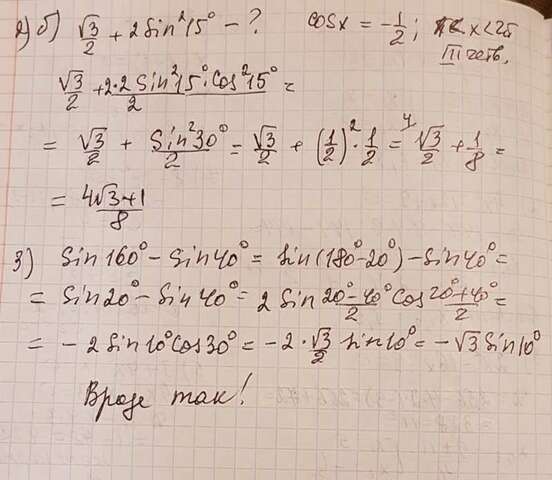 2) б) √3/2 + 2 Sin²15° - ? cos x = -1/2; x < 2π
III четв.
√3/2 + 2·2 Sin²15°·Cos²15°/2 =
= √3/2 + Sin²30°/2 = √3/2 + (1/2)²·1/2 = ⁴√3/2 + 1/8 =
= 4√3+1/8
3) Sin160° - Sin40° = Sin(180°-20°) - Sin40° =
= Sin20° - Sin40° = 2 Sin 20°-40°/2 Cos 20°+40°/2 =
= - 2 Sin10° Cos30° = -2·√3/2 Sin10° = -√3 Sin10°
Вроде так!